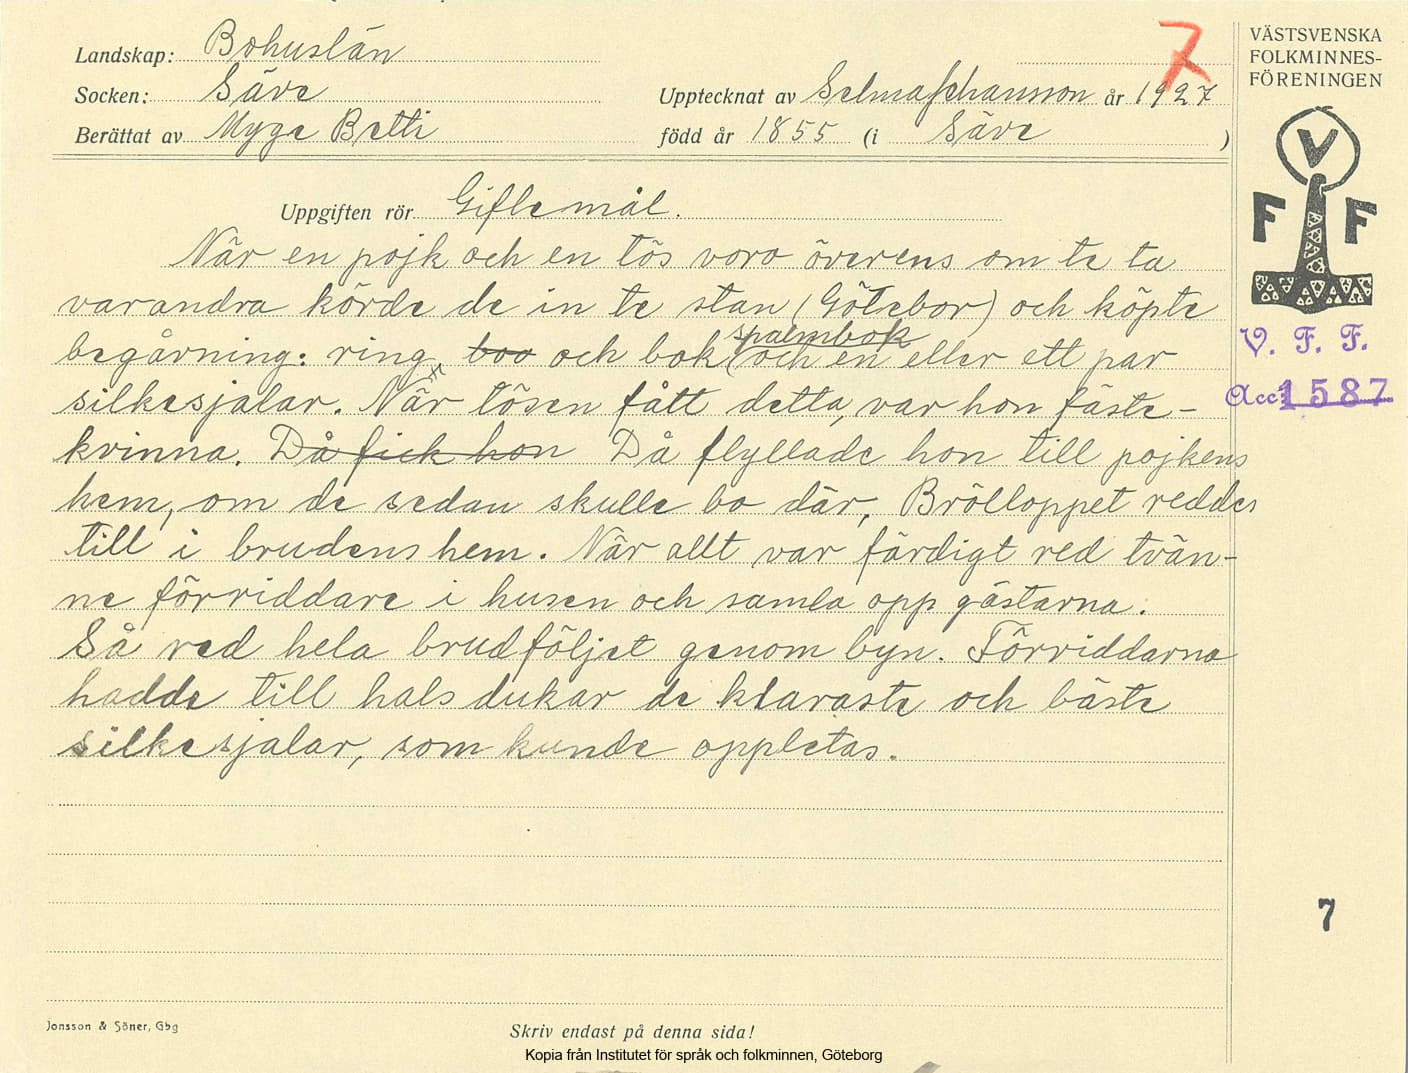 Landskap: Bohuslän
Socken: Säve
Berättat av Myge Betti
Upptecknat av Selma Johansson år 1927
född år 1855 (i Säve )
7
Uppgiften rör Giftemål.
När en pojk och en tös voro överens om te ta
varandra körde de in te stan (Götebor) och köpte
begårning: ring, boo och bok (och en eller ett par
spalmbok
x
silkesjalar. När tösen fått detta, var hon fäste-
kvinna. Då fick hon Då flyllade hon till pojkens
hem, om de sedan skulle bo där, Brölloppet reddes
till i brudens hem. När allt var färdigt red tvän-
ne förriddare i husen och samla opp gästarna.
Så red hela brudföljet genom byn. Förriddarna
hadde till halsdukar de klaraste och bäste
silkesjalar, som kunde oppletas.
VÄSTSVENSKA
FOLKMINNES-
FÖRENINGEN
V
F F
V. F. F.
Acc: 1587
7
Jonsson & Söner, Gbg
Skriv endast på denna sida!
Kopia från Institutet för språk och folkminnen, Göteborg